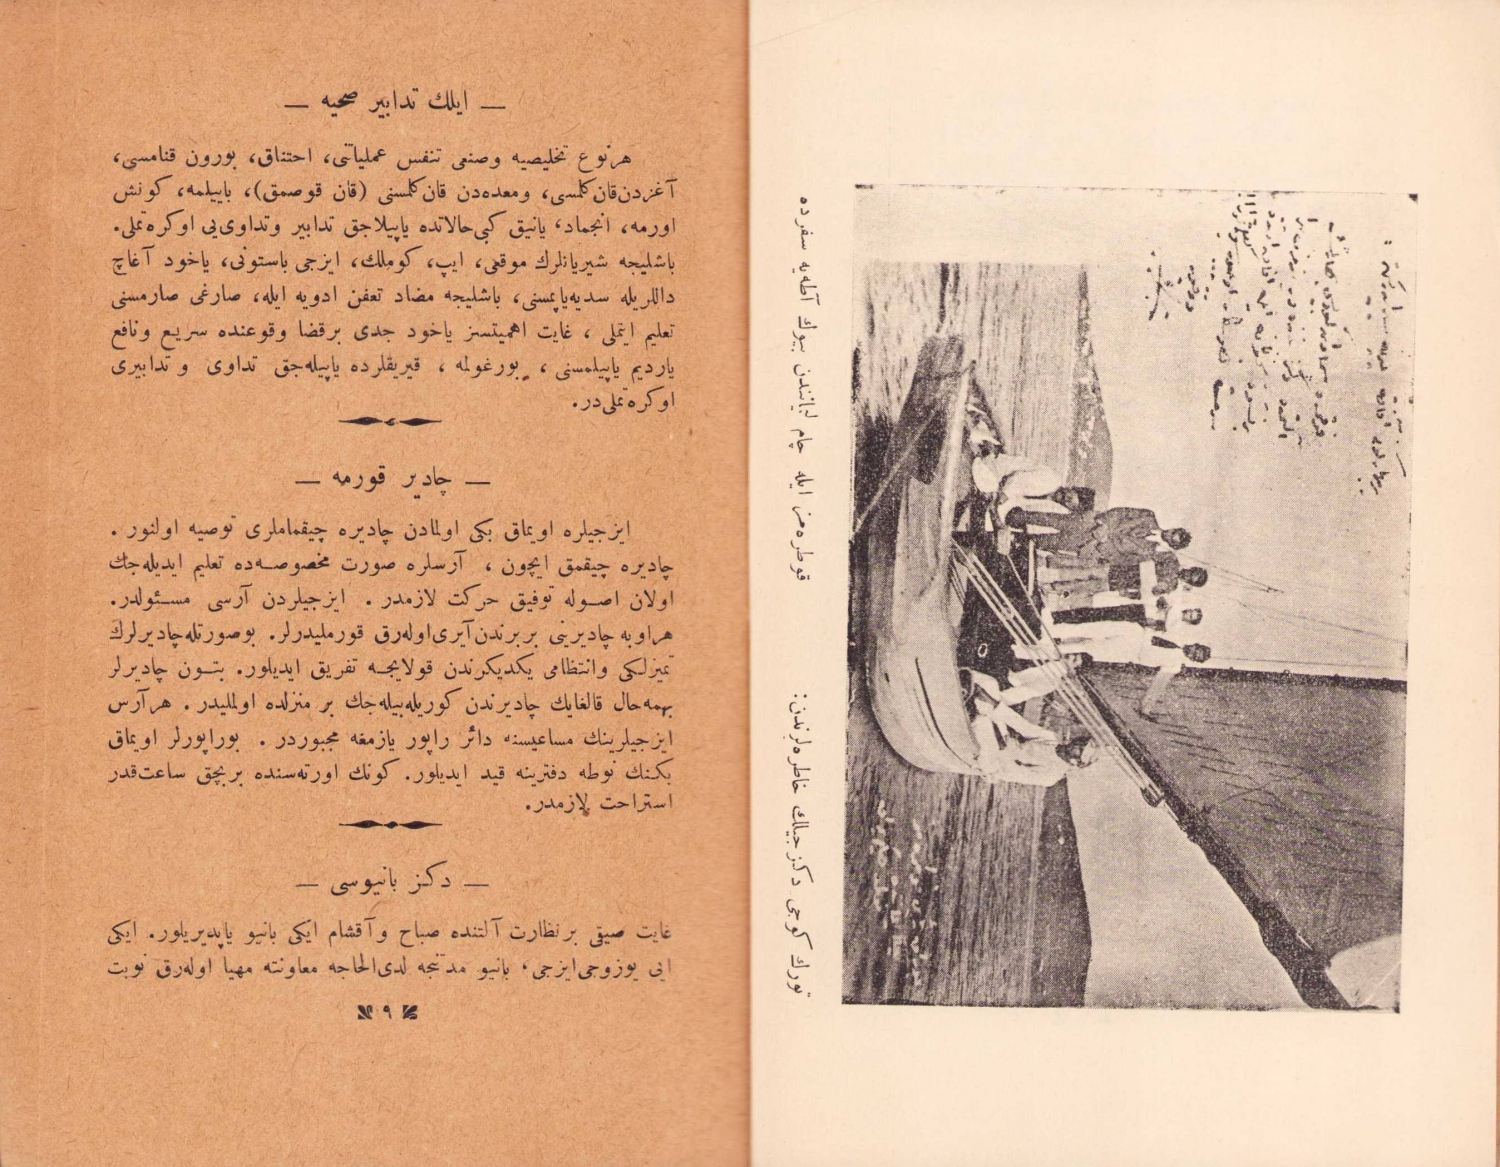 — ايلك تدابير صحيه —
هرنوع تخليصيه وصنعى تنفس عملياتى، احتناق، بورون قنامسى،
آغزدن قان كلمسى، ومعده‌دن قان كلمسنى (قان قوصمق)، باييلمه، كونش
اورمه، انجماد، يانيق كبى حالاتده ياپيلاجق تدابير وتداوى‌يى اوكره‌تملى.
باشليجه شيريانلرك موقعى، ايپ، كوملك، ايزجى باستونى، ياخود آغاچ
داللريله سديه ياپمسنى، باشليجه مضاد تعفن ادويه ايله، صارغى صارمسنى
تعليم ايتملى ، غايت اهميتسز ياخود جدى برقضا وقوعنده سريع ونافع
يارديم ياپيلمسنى ، بورغولمه ، قيريقلرده ياپيله‌جق تداوى و تدابيرى
اوكره‌تملى‌در.
— چادير قورمه —
ايزجيلره اويماق بكى اولمادن چاديره چيقماملرى توصيه اولنور .
چاديره چيقمق ايچون ، آرسلره صورت مخصوصه‌ده تعليم ايديله‌جك
اولان اصوله توفيق حركت لازمدر . ايزجيلردن آرسى مسئولدر.
هراوبه چاديرينى بربرندن آيرى اوله‌رق قورمليدرلر. بوصورتله چاديرلرك
تميزلكى وانتظامى يكديكرندن قولايجه تفريق ايديلور. بتون چاديرلر
بهمه‌حال قالغايك چاديرندن كوريله‌بيله‌جك بر منزلده اولمليدر . هرآرس
ايزجيلرينك مساعيسنه دائر راپور يازمغه مجبوردر . بوراپورلر اويماق
بكنك نوطه دفترينه قيد ايديلور. كونك اورته‌سنده بربچق ساعت قدر
استراحت لازمدر.
— دكز بانيوسى —
غايت صيقى برنظارت آلتنده صباح وآقشام ايكى بانيو ياپديريلور. ايكى
ايى يوزوجى ايزجى، بانيو مدتنجه لدى‌الحاجه معاونته مهيا اوله‌رق نوبت
٩
تورك كوجى دكزجيلك خاطره‌لرندن:
قوطره‌مز ايله چام ليمانندن بيوك آطه‌يه سفرده